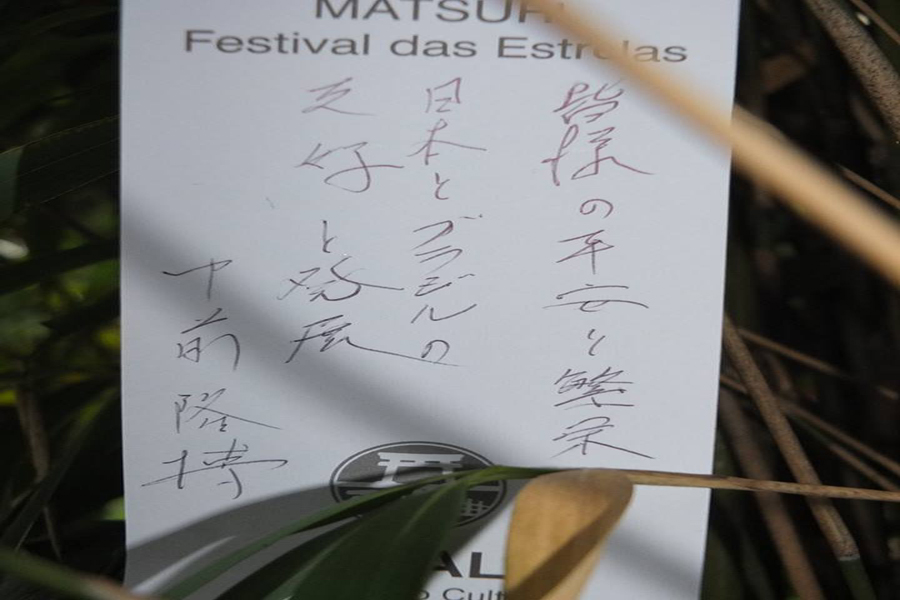 MATSURI
Festival das Estrelas
皆様の平安と繁栄
日本とブラジルの
友好と発展
中前隆博
AL
o Cult